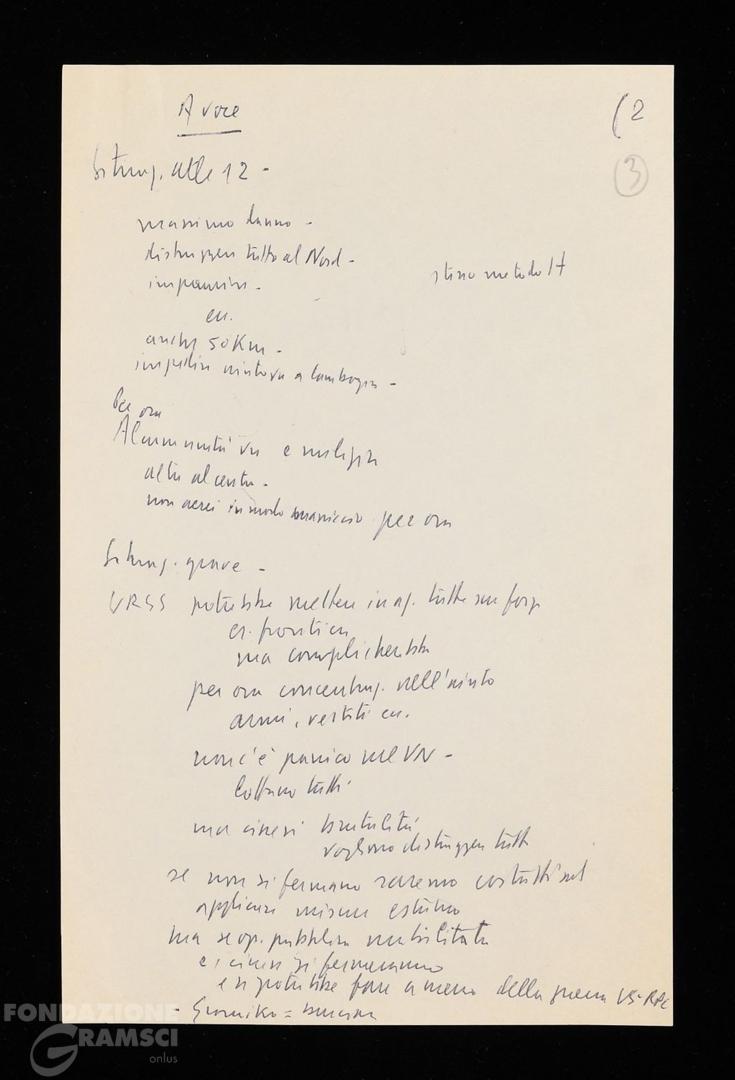 A voce
(2
3
Situaz. alle 12 -
massimo danno -
distruggere tutto al Nord -
impaurire -
stesso metodo
ecc.
anche 50 Km -
impedire aiuto VN a Cambogia -
Per ora
VN e
altri al centro -
non aerei in modo massiccio per ora
Situaz. grave -
URSS potrebbe mettere in az. tutte sue forze
es. frontiera
ma complicherebbe
per ora concentraz. nell'aiuto
armi, vestiti ecc.
non c'è panico nel VN -
lottano tutti
ma cinesi brutalità
vogliono distruggere tutto
se non si fermano saremo costretti ad
applicare misure estreme
ma se op. pubblica mobilitata
e i cinesi si fermeranno
e si potrebbe fare a meno della guerra US-RPC
- Gromiko =
FONDAZIONE
GRAMSCI
onlus